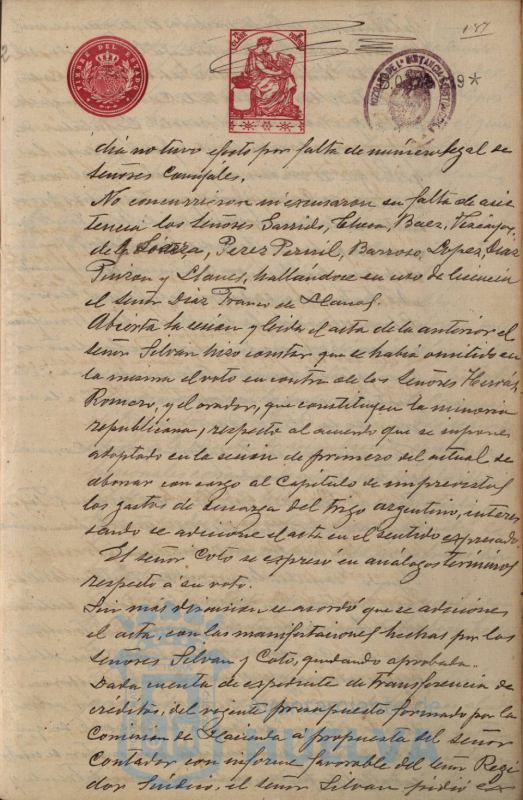 187
TIMBRE DEL ESTADO
día no tuvo efecto por falta de número legal de
Señores Conejales.
No concurrieron ni excusaron su falta de asis
tencia los Señores Garrido, Baez, Vizcaya,
de la Perez Pernil, Barroso, Lopez, Diaz
Pinzon y Llanes, hallándose en uso de licencia
el Señor Diaz Franco de Llanos.
Abierta la sesion y leida el acta de la anterior el
señor Silvan hizo constar que se había omitido en
la misma el voto en contra de los Señores Hervás,
Romero, y el orador, que constituyen la minoria
republicana, respecto al acuerdo que se supone
adoptado en la sesion de primero del actual de
abonar con cargo al Capitulo de imprevistos
los gastos de descarga del trigo argentino, intere
sando se adicione el acta en el sentido expresado
El Señor Coto se expresó en análogos terminos
respecto á su voto.
Sin mas discusion se acordó que se adicione
el acta, con las manifestaciones hechas por los
Señores Silvan y Coto, quedando aprobada.
Dada cuenta de expediente de transferencia de
creditos, del vigente presupuesto formado por la
Comision de Hacienda a propuesta del señor
Contador con informe favorable del señor Regi
dor Sindico, el señor Silvan pidió
HUELVA